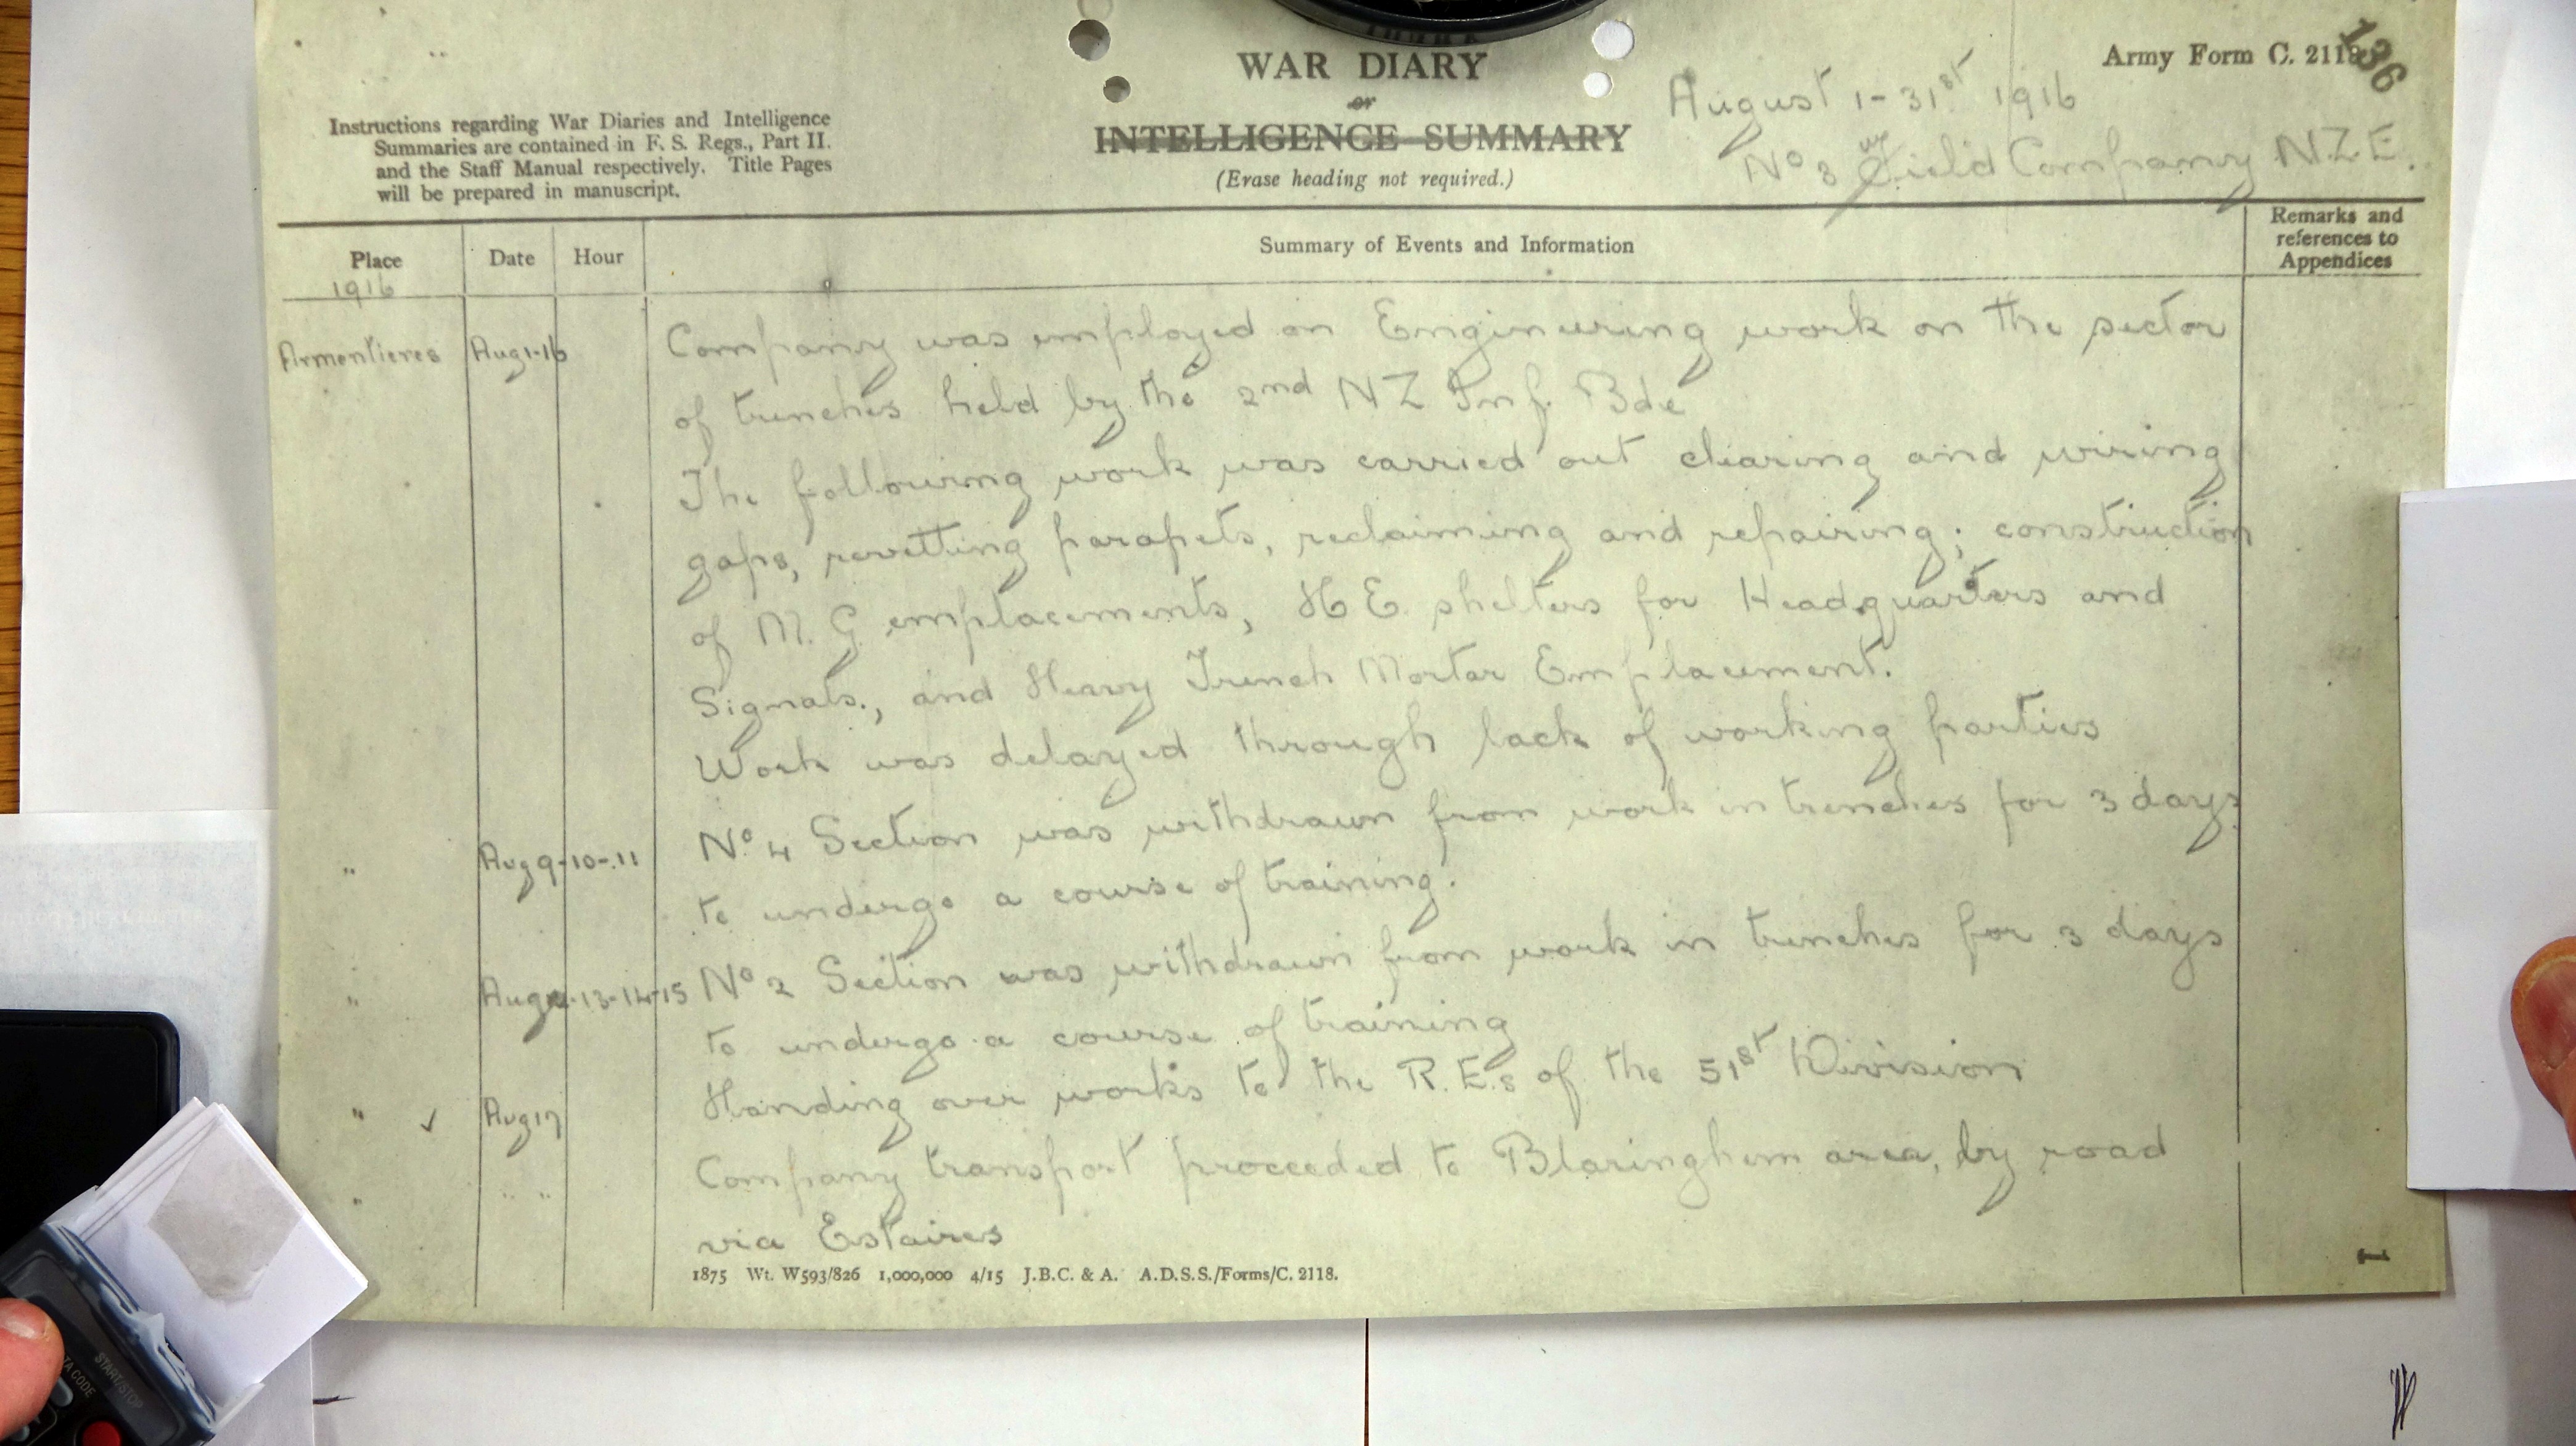 WAR DIARY
or
INTELLIGENCE SUMMARY
(Erase heading not required.)
Army Form C. 2118
136
Instructions regarding War Diaries and Intelligence
Summaries are contained in F. S. Regs., Part II.
and the Staff Manual respectively. Title Pages
will be prepared in manuscript.
August 1-31st 1916
No 3 Field Company N.Z.E.
Place
Date
Hour
Summary of Events and Information
Remarks and
references to
Appendices
1916
Armentieres Aug 1-16 Company was employed on Engineering work on the sector
of trenches held by the 2nd NZ Inf. Bde
The following work was carried out clearing and wiring
gaps, revetting parapets, reclaiming and repairing; construction
of M. G emplacements, H E. shelters for Headquarters and
Signals., and Heavy Trench Mortar Emplacement.
Work was delayed through lack of working parties
" Aug 9-10-11 No. 4 Section was withdrawn from work in trenches for 3 days
to undergo a course of training.
" Aug 12-13-14-15 No 2 Section was withdrawn from work in trenches for 3 days
to undergo a course of training
" ✓ Aug 17 Handing over works to the R.E.s of the 51st Division
" " " Company transport proceeded to Blaringhem area, by road
via Estaires
1875 Wt. W593/826 1,000,000 4/15 J.B.C. & A. A.D.S.S./Forms/C. 2118.
1
TA CODE
START/STOP